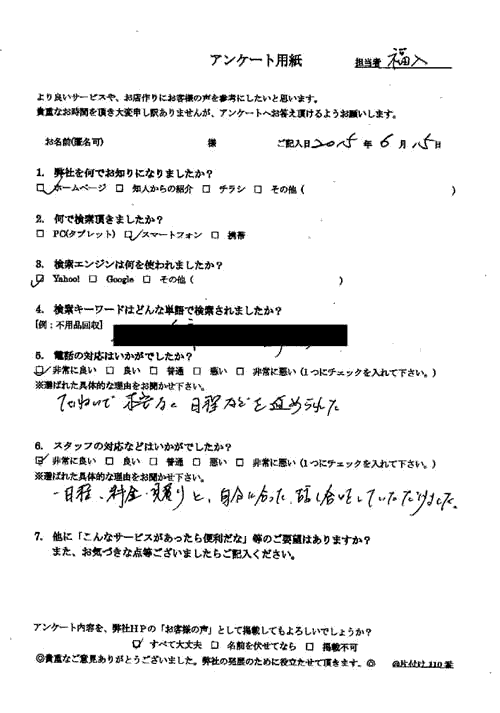 アンケート用紙
担当者 福入
より良いサービスや、お店作りにお客様の声を参考にしたいと思います。
貴重なお時間を頂き大変申し訳ありませんが、アンケートへお答え頂けるようお願いします。
お名前(匿名可) 様 ご記入日 2015 年 6 月 15 日
1. 弊社を何でお知りになりましたか?
☑ ホームページ □ 知人からの紹介 □ チラシ □ その他 ( )
2. 何で検索頂きましたか?
□ PC(タブレット) ☑ スマートフォン □ 携帯
3. 検索エンジンは何を使われましたか?
☑ Yahoo! □ Google □ その他 ( )
4. 検索キーワードはどんな単語で検索されましたか?
[例:不用品回収]
5. 電話の対応はいかがでしたか?
☑ 非常に良い □ 良い □ 普通 □ 悪い □ 非常に悪い (1つにチェックを入れて下さい。)
※選ばれた具体的な理由をお聞かせ下さい。
ていねいで 日程などを進められた
6. スタッフの対応などはいかがでしたか?
☑ 非常に良い □ 良い □ 普通 □ 悪い □ 非常に悪い (1つにチェックを入れて下さい。)
※選ばれた具体的な理由をお聞かせ下さい。
日程、料金・見積りと、自分に合った、話し合いをしていただけました。
7. 他に「こんなサービスがあったら便利だな」等のご要望はありますか?
また、お気づきな点等ございましたらご記入ください。
アンケート内容を、弊社HPの「お客様の声」として掲載してもよろしいでしょうか?
☑ すべて大丈夫 □ 名前を伏せてなら □ 掲載不可
◎貴重なご意見ありがとうございました。弊社の発展のために役立たせて頂きます。◎ @片付け110番